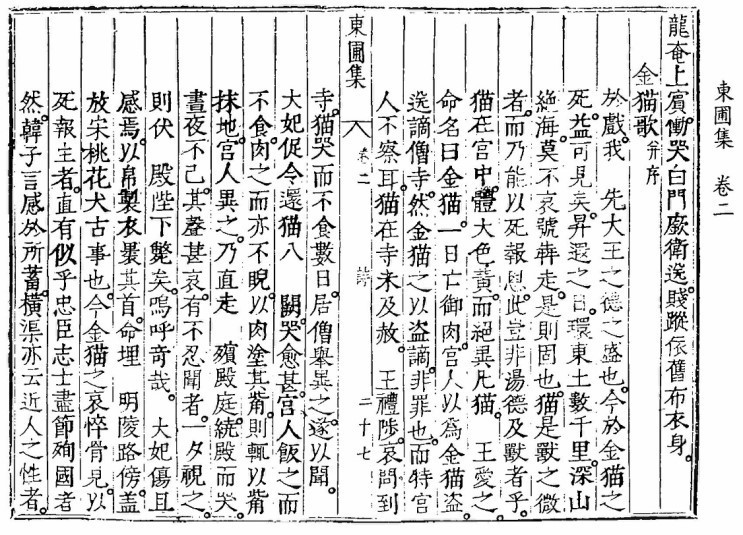 東圃集 卷二
龍奄上賓慟哭白門廞衛送。賤蹤依舊布衣身。
金猫歌 并序
於戲。我 先大王之德之盛也。今於金猫之
死。益可見矣。昇遐之日。環東土數千里。深山
絕海。莫不哀號犇走。是則固也。猫是獸之微
者。而乃能以死報恩。此豈非湯德及獸者乎。
猫在宮中。體大色黃。而絕異凡猫。 王愛之。
命名曰金猫。一日亡御肉。宮人以爲金猫盜。
逸謫僧寺。然金猫之以盜謫。非罪也。而特宮
人不察耳。猫在寺未及赦。 王禮陟。哀問到
東圃集 卷二 詩 二十七
寺。猫哭而不食數日。居僧舉異之。遂以聞。
大妃促令還猫入 闕。哭愈甚。宮人飯之而
不食。肉之而亦不睨。以肉塗其觜。則輒以觜
抹地。宮人異之。乃直走 殯殿庭。繞殿而哭。
晝夜不已。其聲甚哀。有不忍聞者。一夕視之。
則伏 殿陛下斃矣。嗚呼奇哉。 大妃傷且
感焉。以帛製衣褁其首。命埋 明陵路傍。盖
放宋桃花犬古事也。今金猫之哀悴骨見。以
死報主者。直有似乎忠臣志士盡節殉國者
然。韓子言感於所蓄。橫渠亦云近人之性者。